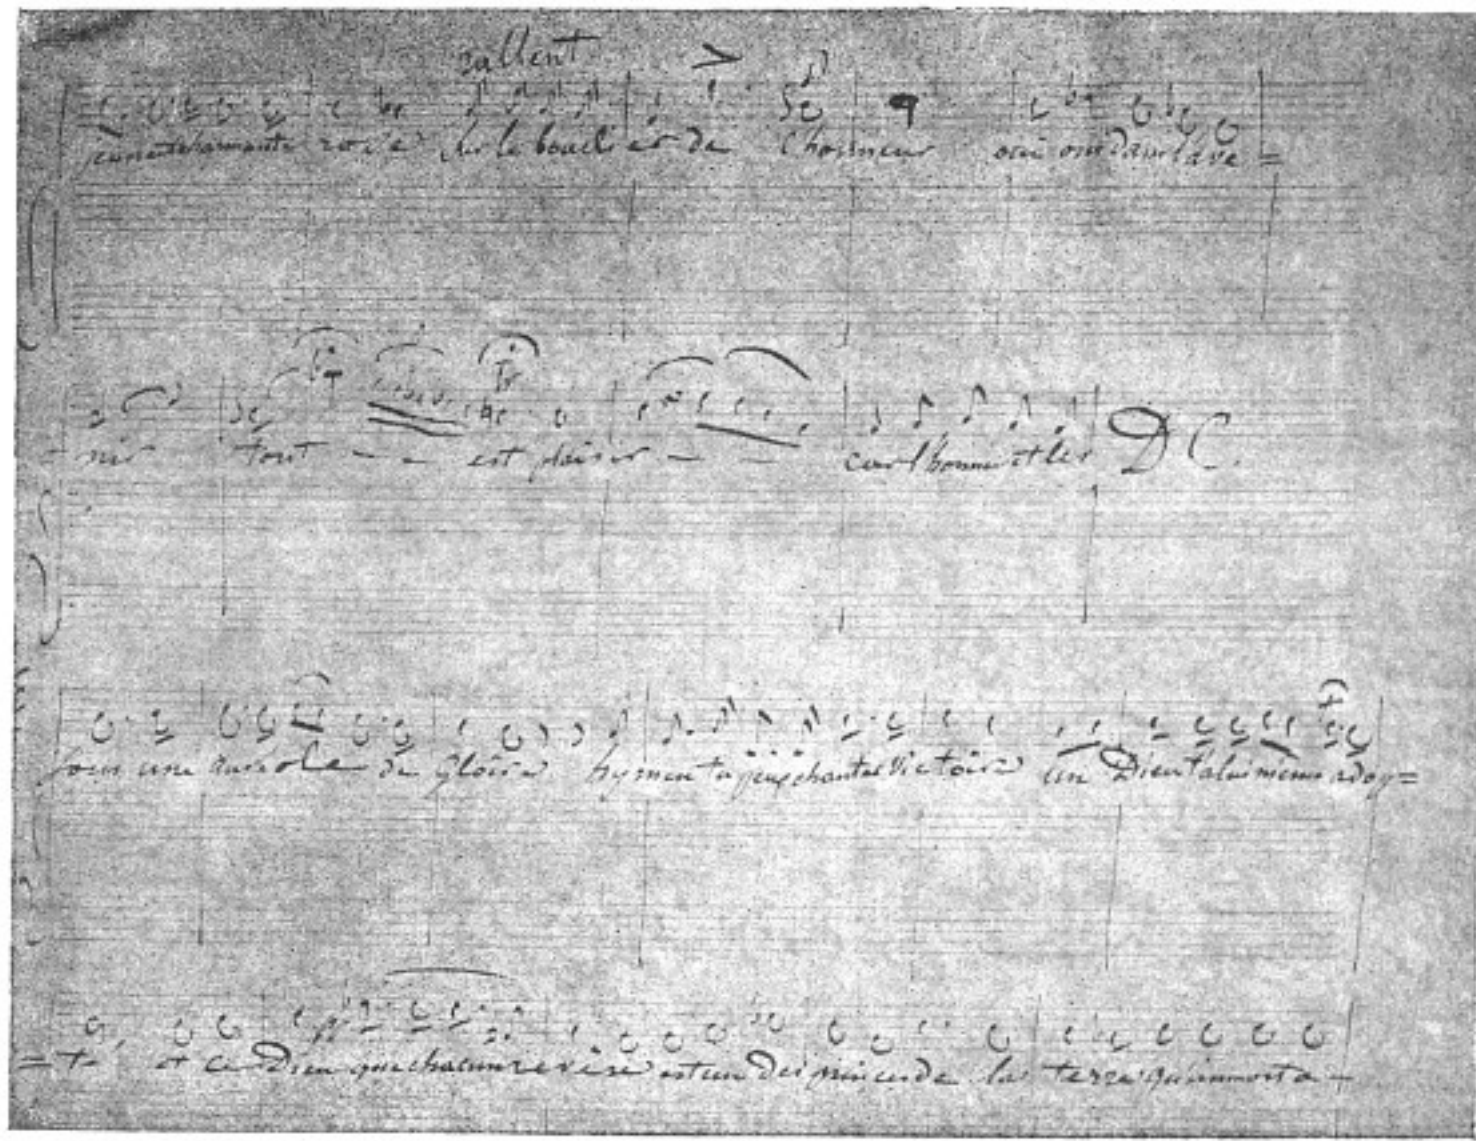 rallent
rose sur le bouclier de l'honneur oui oui dans l'ave=
nir tout - - est plaisir - - car l'honneur et les D C.
sous une aureole de gloire hymen tu peux chanter Victoire un Dieu
= t et ce Dieu que chacun revere est un des princes de la terre qu'immorta-